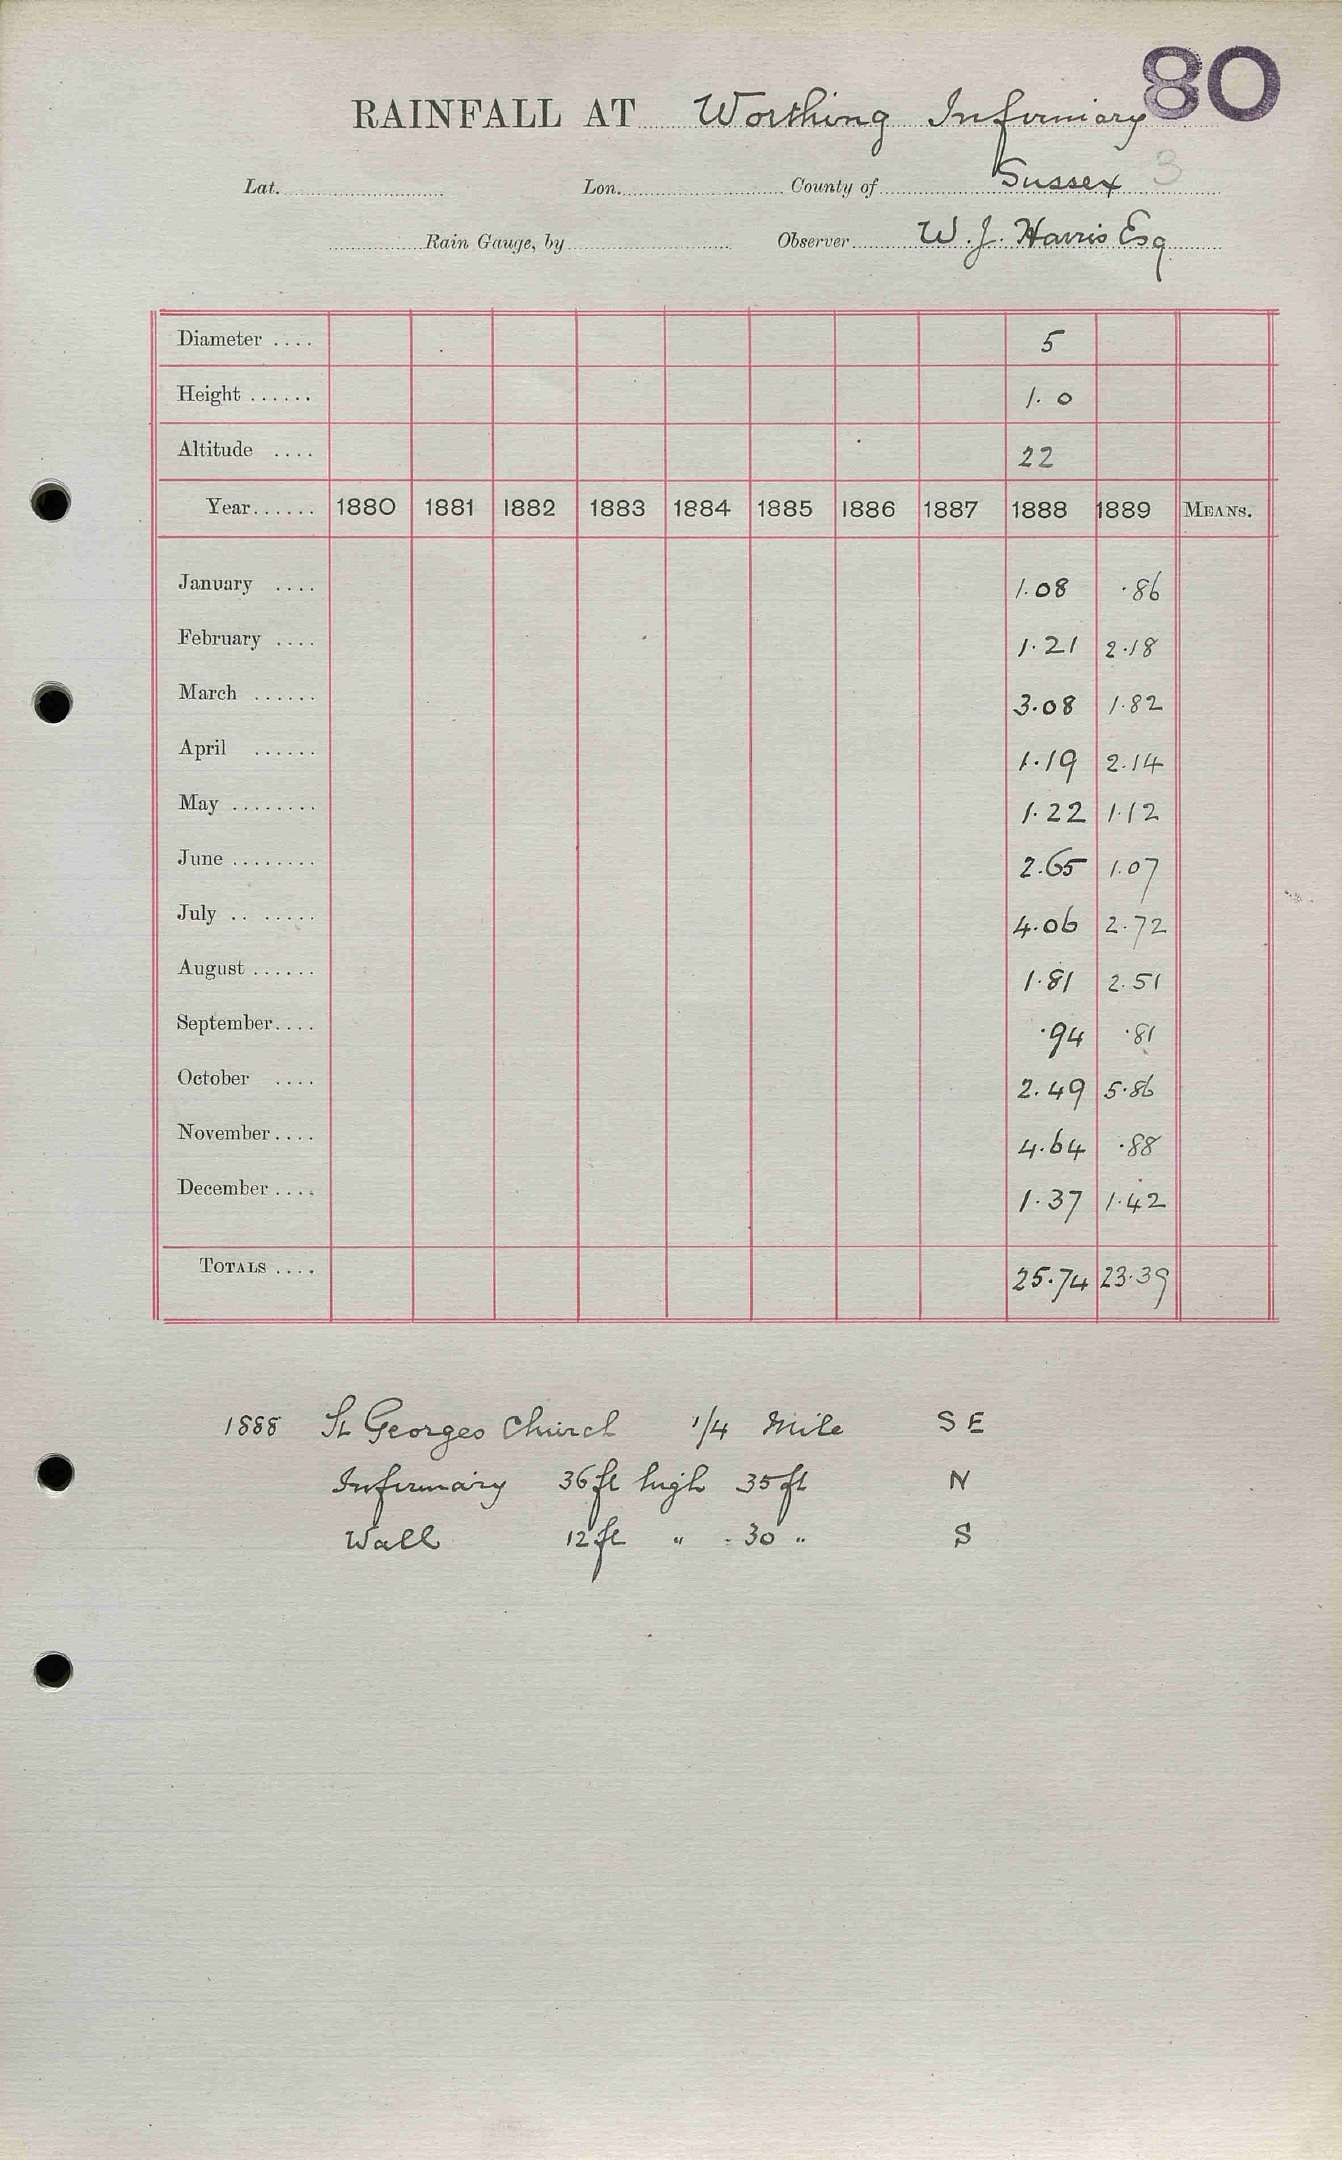 80
RAINFALL AT Worthing Infirmary
Lat. Lon. County of Sussex 3
Rain Gauge, by Observer W. J. Harris Esq
Diameter .... 5
Height ...... 1.0
Altitude .... 22
Year...... 1880 1881 1882 1883 1884 1885 1886 1887 1888 1889 MEANS.
January .... 1.08 .86
February .... 1.21 2.18
March ...... 3.08 1.82
April ...... 1.19 2.14
May ........ 1.22 1.12
June ........ 2.65 1.07
July .. ..... 4.06 2.72
August ...... 1.81 2.51
September.... .94 .81
October .... 2.49 5.86
November.... 4.64 .88
December .... 1.37 1.42
TOTALS .... 25.74 23.39
1888 St Georges Church 1/4 Mile S E
Infirmary 36 ft high 35 ft N
Wall 12 ft " 30 " S